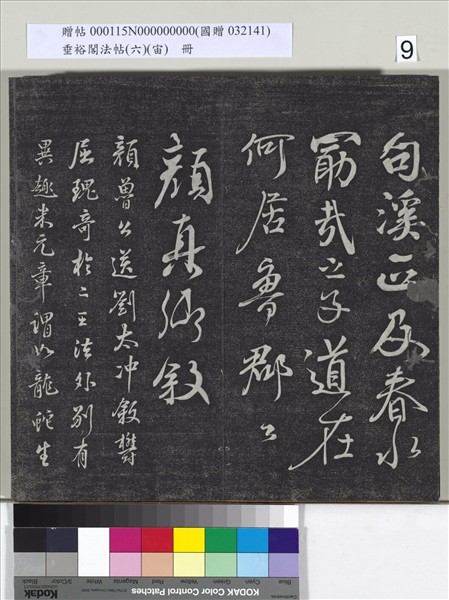 贈帖 000115N000000000(國贈 032141)
垂裕閣法帖(六)(宙)　冊
9
句溪正及春水
勗哉之子道在
何居魯郡公
顏真卿叙
顏魯公送劉太冲叙欝
屈瑰奇於二王法外別有
異趣米元章謂如龍蛇生
Kodak
KODAK Color Control Patches
Blue
Cyan
Green
Yellow
Red
Magenta
White
3/Color
Black